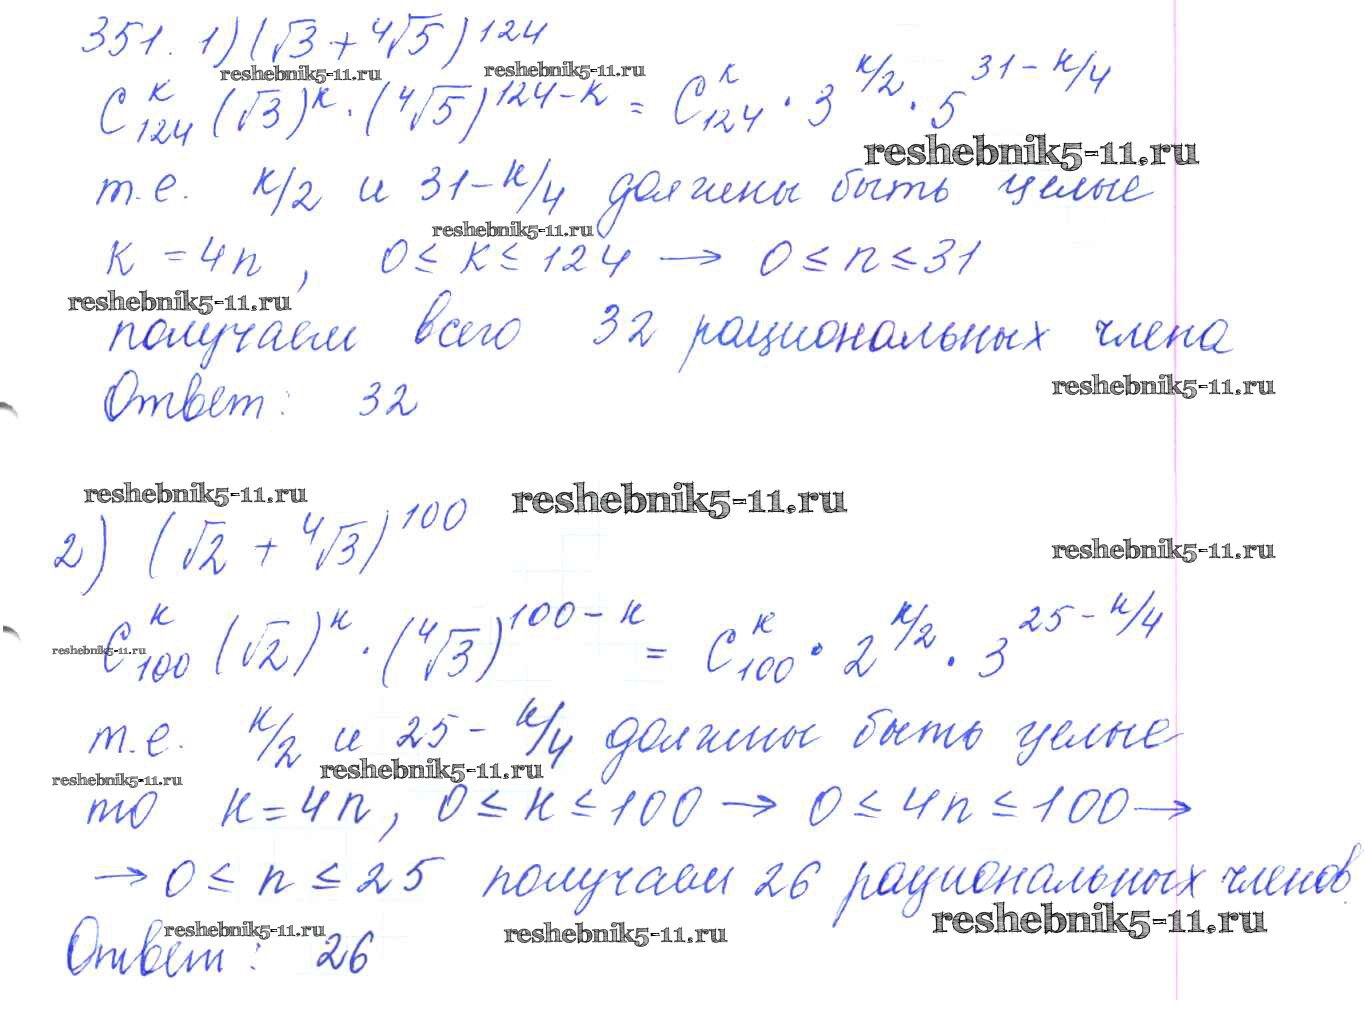 351. 1) (√3 + ⁴√5)¹²⁴
reshebnik5-11.ru reshebnik5-11.ru
C₁₂₄ᵏ (√3)ᵏ · (⁴√5)¹²⁴⁻ᵏ = C₁₂₄ᵏ · 3^(к/2) · 5^(31-к/4)
reshebnik5-11.ru
т.е. к/2 и 31-к/4 должны быть целые
reshebnik5-11.ru
к = 4n, 0 ≤ к ≤ 124 → 0 ≤ n ≤ 31
reshebnik5-11.ru
получаем всего 32 рациональных члена
reshebnik5-11.ru
Ответ: 32
reshebnik5-11.ru reshebnik5-11.ru
2) (√2 + ⁴√3)¹⁰⁰
reshebnik5-11.ru
C₁₀₀ᵏ (√2)ᵏ · (⁴√3)¹⁰⁰⁻ᵏ = C₁₀₀ᵏ · 2^(к/2) · 3^(25-к/4)
reshebnik5-11.ru
т.е. к/2 и 25-к/4 должны быть целые
reshebnik5-11.ru reshebnik5-11.ru
то к = 4n, 0 ≤ к ≤ 100 → 0 ≤ 4n ≤ 100 →
→ 0 ≤ n ≤ 25 получаем 26 рациональных членов
reshebnik5-11.ru reshebnik5-11.ru reshebnik5-11.ru
Ответ: 26